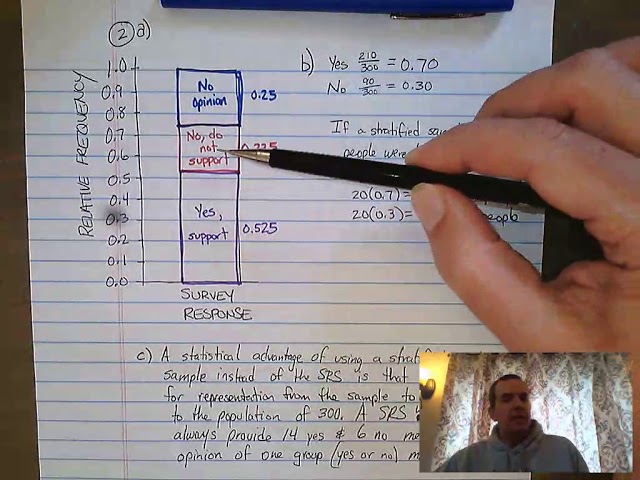 2 a)
1.0
0.9
0.8
0.7
0.6
0.5
0.4
0.3
0.2
0.1
0.0
RELATIVE FREQUENCY
No
opinion
0.25
No, do
not
support
0.225
Yes,
support
0.525
SURVEY
RESPONSE
b) Yes 210/300 = 0.70
No 90/300 = 0.30
If a stratified
people were
20(0.7)=
20(0.3)= people
c) A statistical advantage of using a
sample instead of the SRS is that
for representation from the sample to
to the population of 300. A SRS
always provide 14 yes & 6 no
opinion of one group (yes or no)